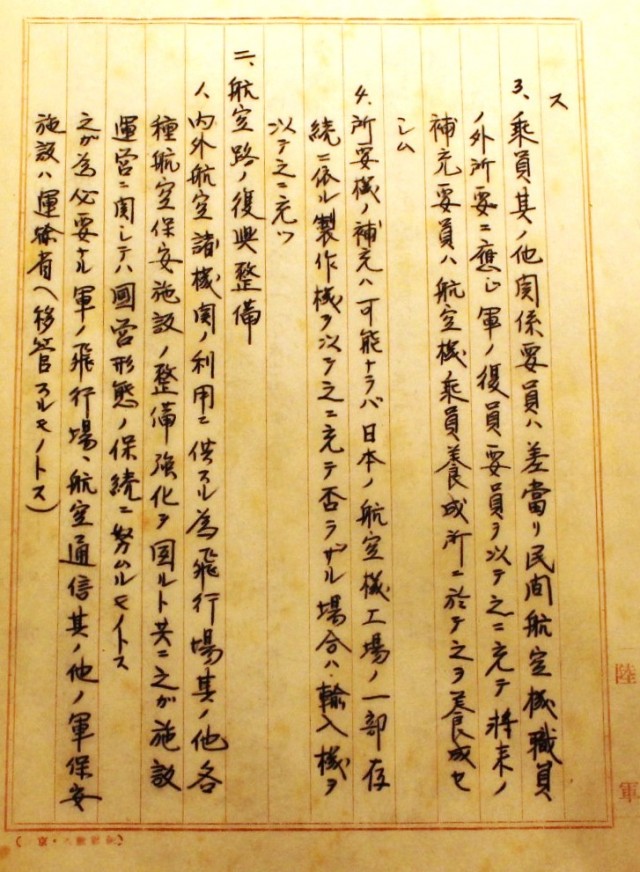 ス
3、乗員其ノ他関係要員ハ差當リ民間航空機職員
ノ外所要ニ應ジ軍ノ復員要員ヲ以テ之ニ充テ将来ノ
補充要員ハ航空機乗員養成所ニ於テ之ヲ養成セ
シム
4、所要機ノ補充ハ可能ナラバ日本ノ航空機工場ノ一部存
続ニ依ル製作機ヲ以テ之ニ充テ否ラザル場合ハ輸入機ヲ
以テ之ニ充ツ
二、航空路ノ復興整備
1、内外航空諸機関ノ利用ニ供スル為飛行場其ノ他各
種航空保安施設ノ整備強化ヲ図ルト共ニ之ガ施設
運営ニ関シテハ國営形態ノ保続ニ努ムルモノトス
之ガ為必要ナル軍ノ飛行場、航空通信其ノ他ノ軍保安
施設ハ運輸省ヘ移管スルモノトス)
陸軍